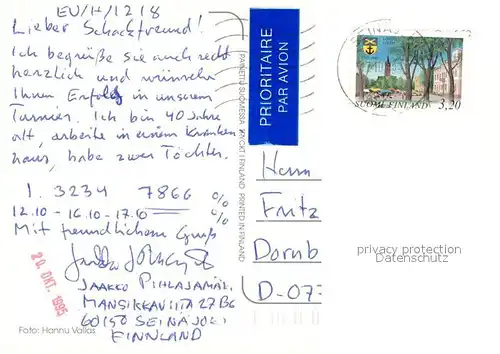 EU/H/1218
Lieber Schachfreund!
Ich begrüße Sie auch recht
herzlich und wünsche
Ihnen Erfolg in unserem
Turnier. Ich bin 40 Jahre
alt, arbeite in einem Kranken
haus, habe zwei Töchter.
1. 3234 7866 %
12.10 - 16.10 - 17.10 %
Mit freundlichem Gruß
JAAKKO PIHLAJAMÄKI
MANSIKKAVIITA 27 B6
60150 SEINÄJOKI
FINNLAND
20. OKT. 1995
Foto: Hannu Vallas
PAINETTU SUOMESSA TRYCKT I FINLAND PRINTED IN FINLAND
PRIORITAIRE
PAR AVION
SUOMI FINLAND 3,20
Herrn
Fritz
Dornb
D-073
privacy protection
Datenschutz